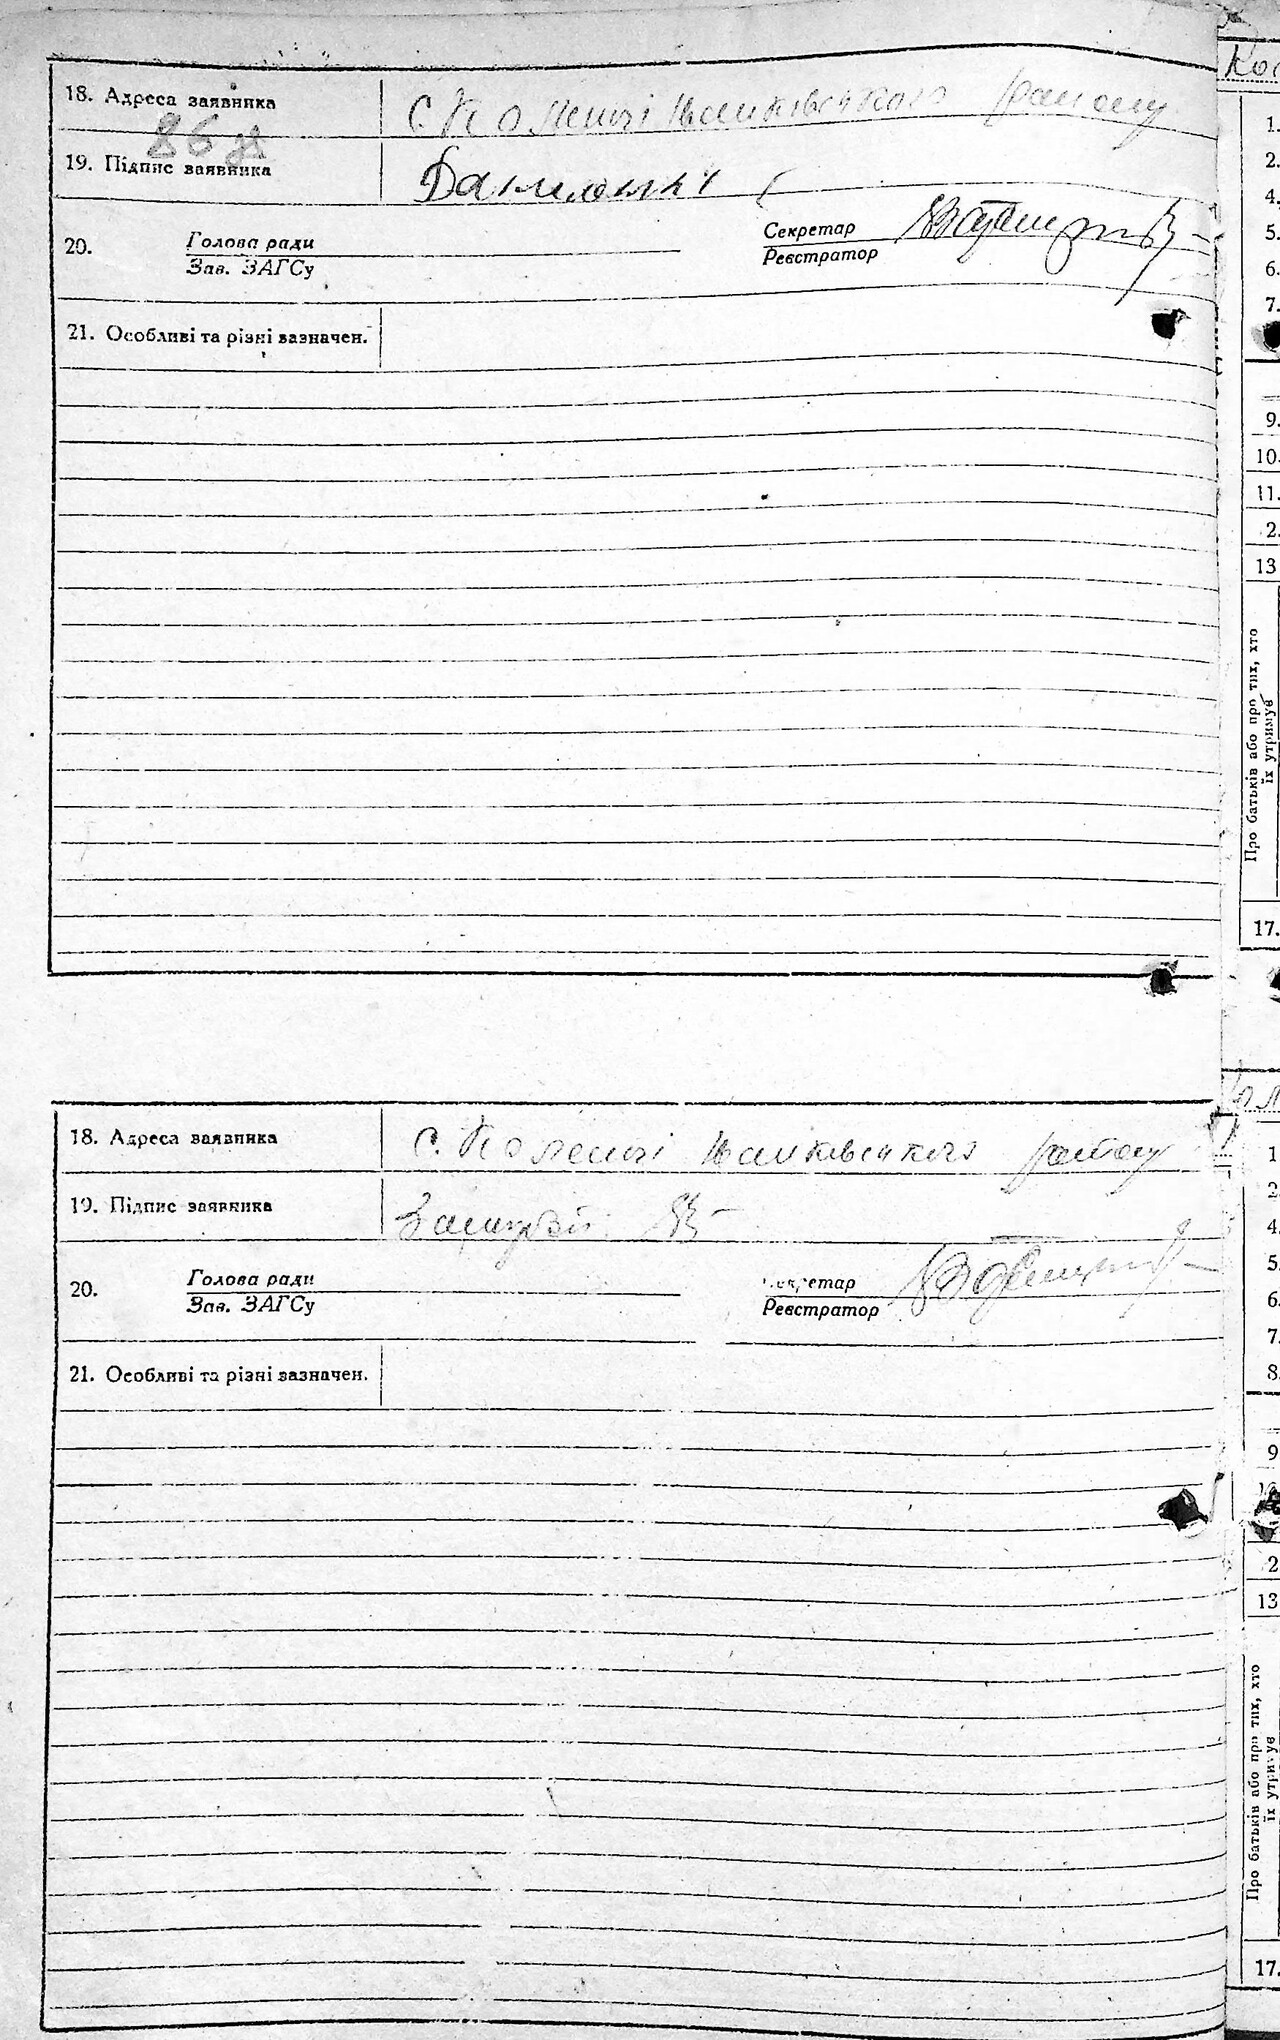 18. Адреса заявника с. Коленці Іванківського району
26 зв
19. Підпис заявника
20. Голова ради Секретар
Зав. ЗАГСу Реєстратор
21. Особливі та різні зазначен.
18. Адреса заявника с. Коленці Іванківського району
19. Підпис заявника
20. Голова ради Секретар
Зав. ЗАГСу Реєстратор
21. Особливі та різні зазначен.
1.
2.
4.
5.
6.
7.
9.
10.
11.
2.
13
Про батьків або про тих, хто
їх утримує
17.
1
2
4.
5.
6.
7.
8.
9
2
13
Про батьків або про тих, хто
їх утримує
17.